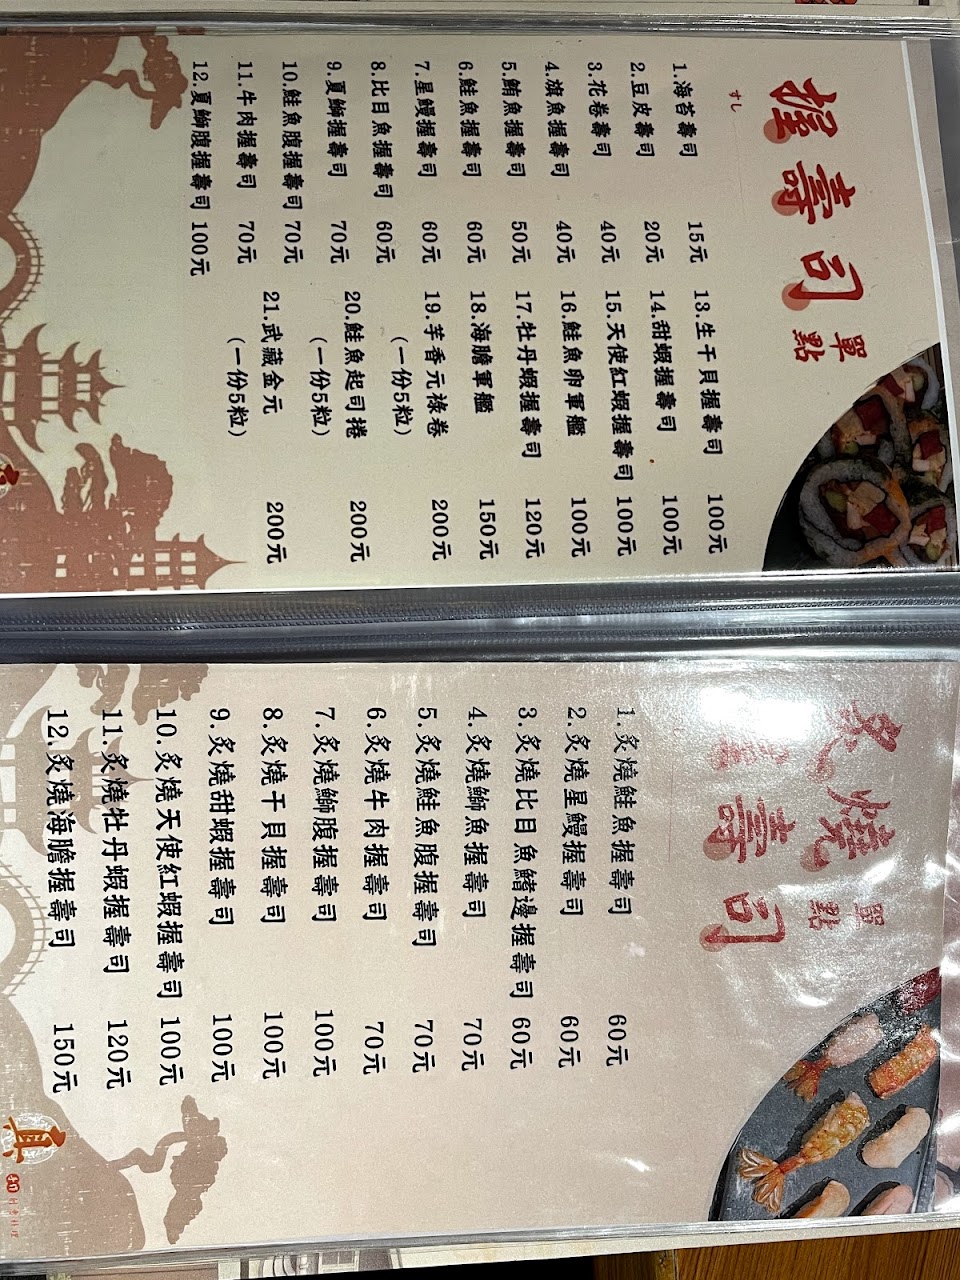 握壽司 單點
すし
1.海苔壽司 15元
2.豆皮壽司 20元
3.花卷壽司 40元
4.旗魚握壽司 40元
5.鮪魚握壽司 50元
6.鮭魚握壽司 60元
7.星鰻握壽司 60元
8.比目魚握壽司 60元
9.夏鰤握壽司 70元
10.鮭魚腹握壽司 70元
11.牛肉握壽司 70元
12.夏鰤腹握壽司 100元
13.生干貝握壽司 100元
14.甜蝦握壽司 100元
15.天使紅蝦握壽司 100元
16.鮭魚卵軍艦 100元
17.牡丹蝦握壽司 120元
18.海膽軍艦 150元
19.芋香元祿卷 200元
(一份5粒)
20.鮭魚起司捲 200元
(一份5粒)
21.武藏金元 200元
(一份5粒)
炙燒握壽司 單點
1.炙燒鮭魚握壽司 60元
2.炙燒星鰻握壽司 60元
3.炙燒比目魚鰭邊握壽司 60元
4.炙燒鰤魚握壽司 70元
5.炙燒鮭魚腹握壽司 70元
6.炙燒牛肉握壽司 70元
7.炙燒鰤腹握壽司 100元
8.炙燒干貝握壽司 100元
9.炙燒甜蝦握壽司 100元
10.炙燒天使紅蝦握壽司 100元
11.炙燒牡丹蝦握壽司 120元
12.炙燒海膽握壽司 150元